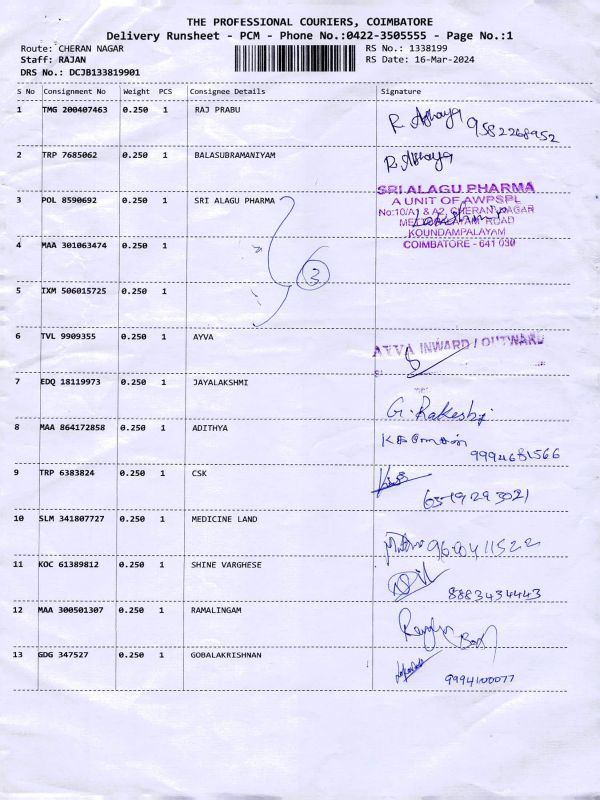 THE PROFESSIONAL COURIERS, COIMBATORE
Delivery Runsheet - PCM - Phone No.:0422-3505555 - Page No.:1
Route: CHERAN NAGAR RS No.: 1338199
Staff: RAJAN RS Date: 16-Mar-2024
DRS No.: DCJB133819901
S No Consignment No Weight PCS Consignee Details Signature
1 TMG 200407463 0.250 1 RAJ PRABU R. Abhaya 9582268952
2 TRP 7685062 0.250 1 BALASUBRAMANIYAM R. Abhaya
3 POL 8590692 0.250 1 SRI ALAGU PHARMA
SRI ALAGU PHARMA
A UNIT OF AWPSPL
No:10/A1 & A2, CHERAN NAGAR
ROAD
KOUNDAMPALAYAM
COIMBATORE - 641 030
4 MAA 301063474 0.250 1
3
5 IXM 506015725 0.250 1
6 TVL 9909355 0.250 1 AYVA AYVA INWARD / OUTWARD
7 EDQ 18119973 0.250 1 JAYALAKSHMI G. Rakesh
8 MAA 864172858 0.250 1 ADITHYA 9994681566
9 TRP 6383824 0.250 1 CSK
10 SLM 341807727 0.250 1 MEDICINE LAND
11 KOC 61389812 0.250 1 SHINE VARGHESE 8883434443
12 MAA 300501307 0.250 1 RAMALINGAM
13 GDG 347527 0.250 1 GOBALAKRISHNAN 9994100077